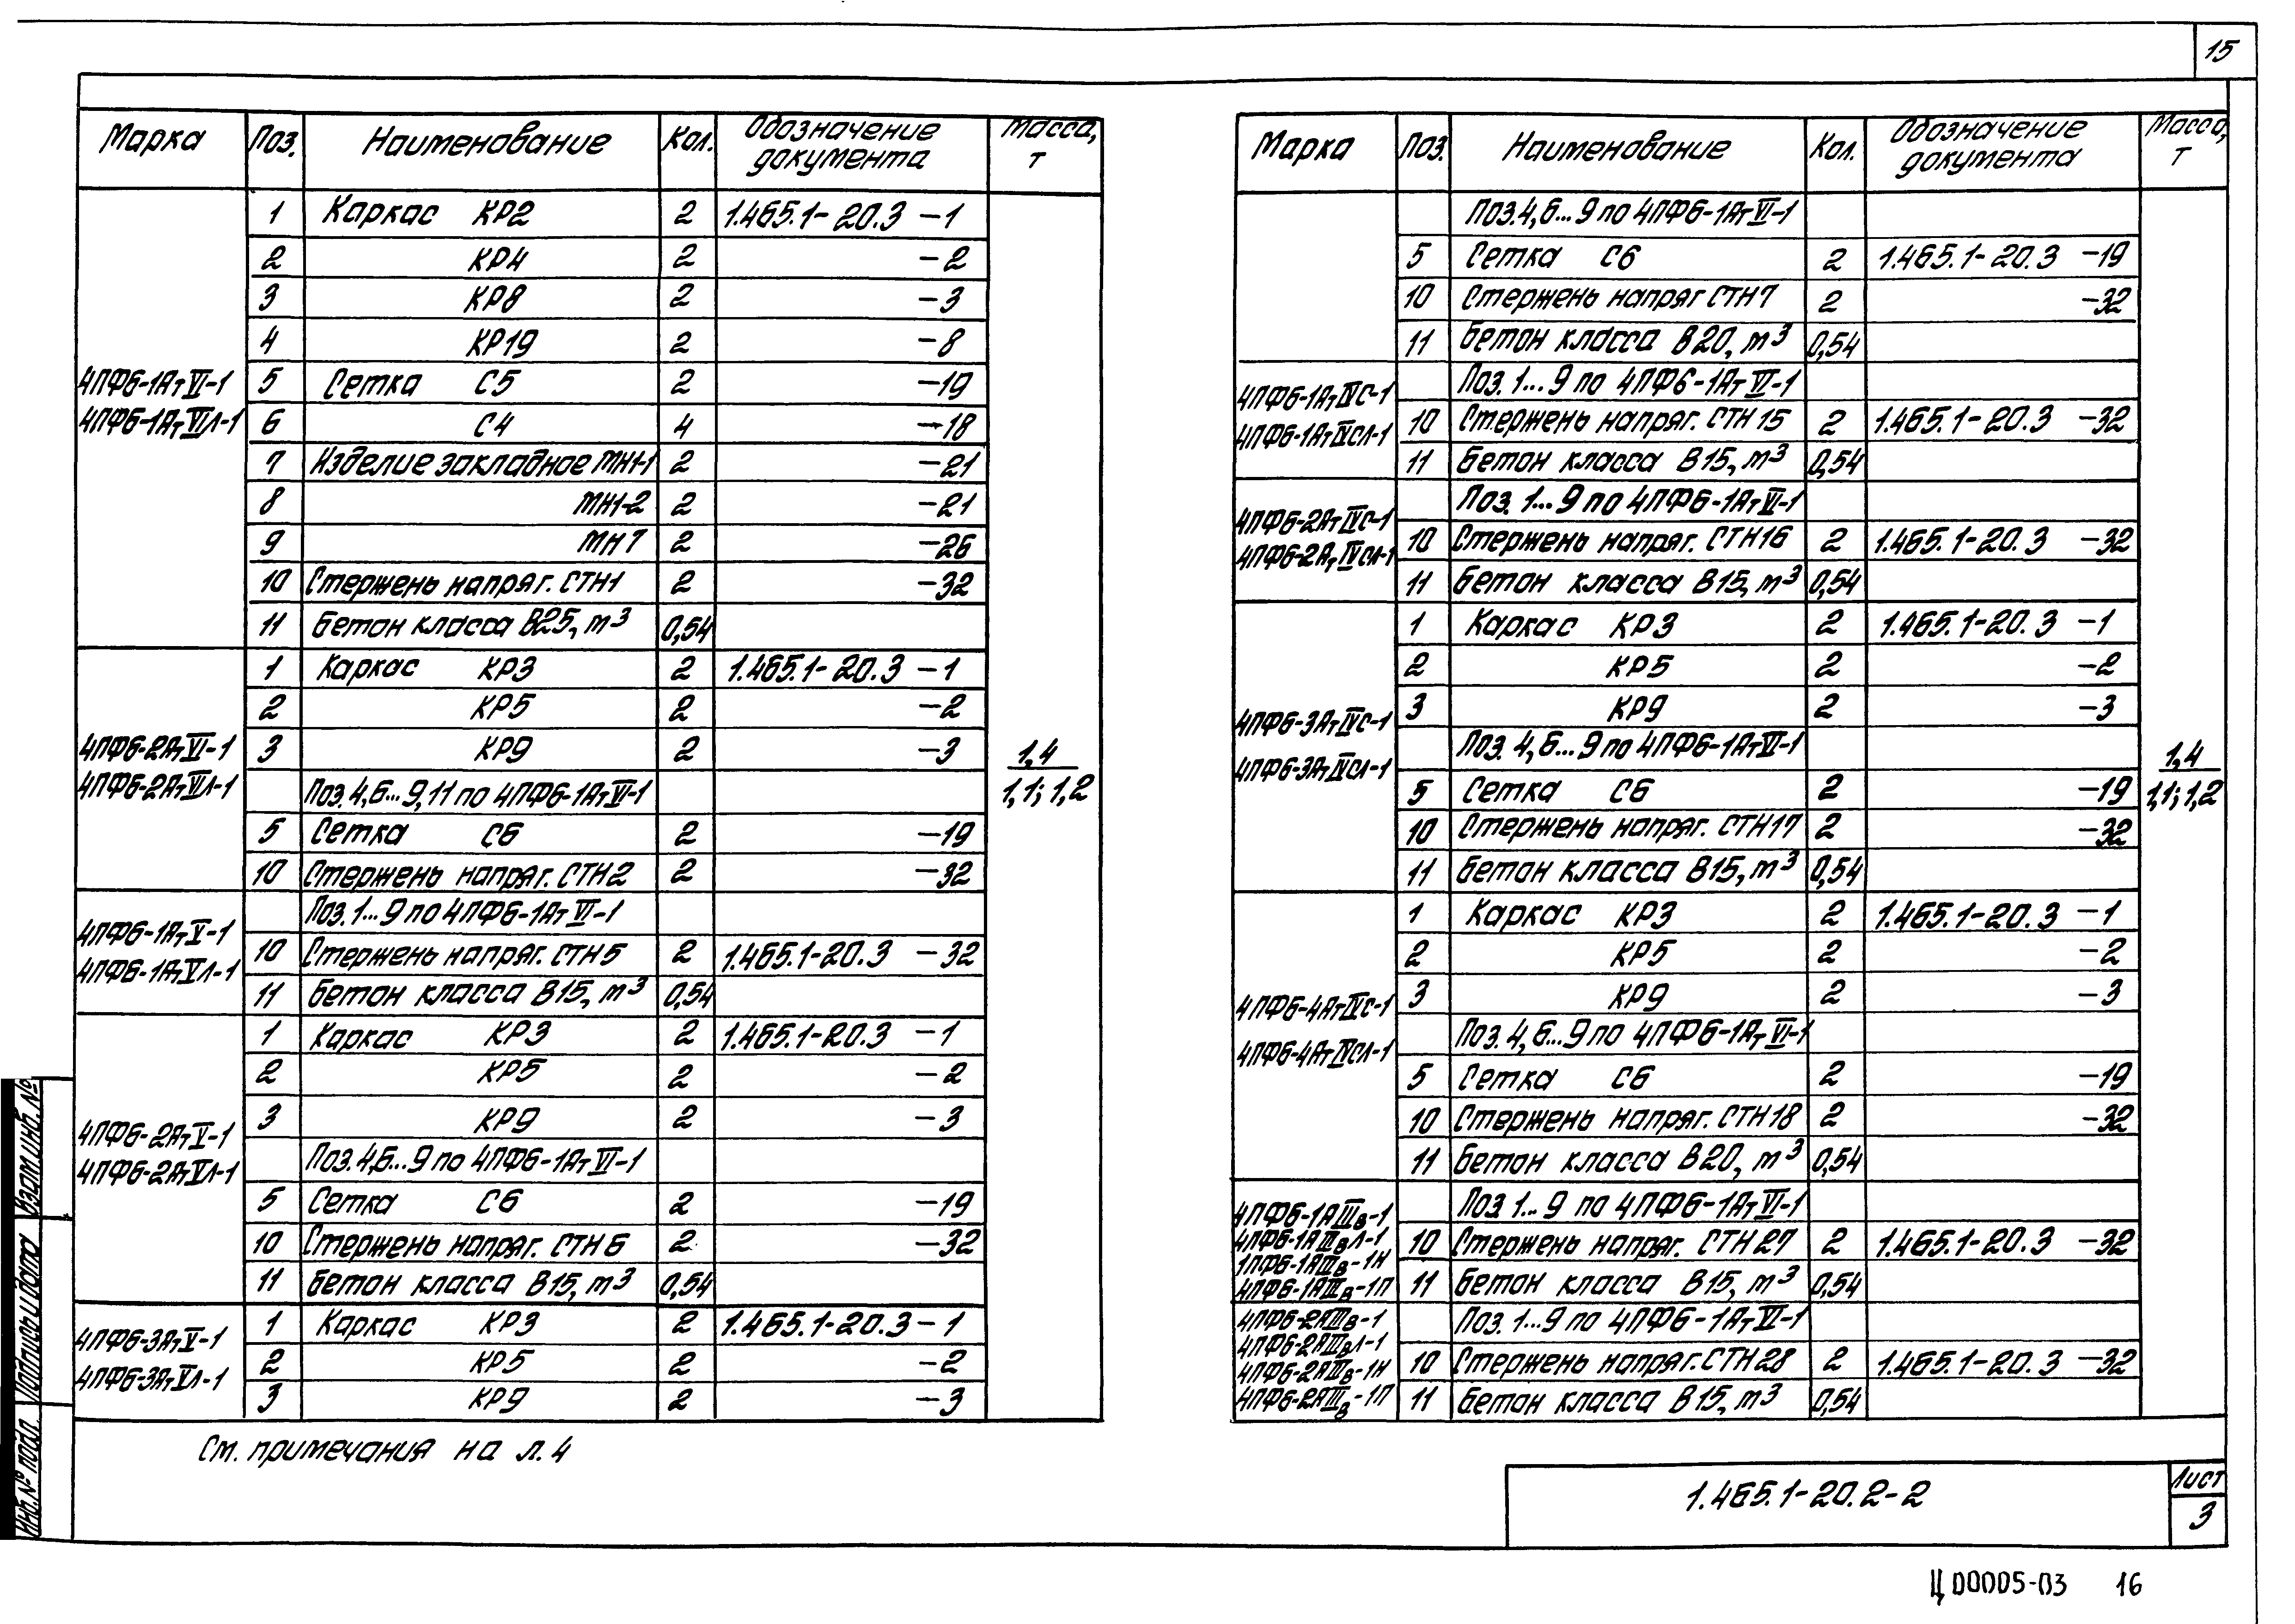 15
Марка Поз. Наименование Кол. Обозначение документа Масса, т
4ПФ6-1АтVI-1
4ПФ6-1АтVIл-1
1 Каркас КР2 2 1.465.1-20.3 -1
2 КР4 2 -2
3 КР8 2 -3
4 КР19 2 -8
5 Сетка С5 2 -19
6 С4 4 -18
7 Изделие закладное МН1-1 2 -21
8 МН1-2 2 -21
9 МН7 2 -26
10 Стержень напряг. СТН1 2 -32
11 Бетон класса В25, м³ 0,54
4ПФ6-2АтVI-1
4ПФ6-2АтVIл-1
1 Каркас КР3 2 1.465.1-20.3 -1
2 КР5 2 -2
3 КР9 2 -3
Поз. 4,6...9,11 по 4ПФ6-1АтVI-1
5 Сетка С6 2 -19
10 Стержень напряг. СТН2 2 -32
4ПФ6-1АтV-1
4ПФ6-1АтVл-1
Поз. 1...9 по 4ПФ6-1АтVI-1
10 Стержень напряг. СТН5 2 1.465.1-20.3 -32
11 Бетон класса В15, м³ 0,54
4ПФ6-2АтV-1
4ПФ6-2АтVл-1
1 Каркас КР3 2 1.465.1-20.3 -1
2 КР5 2 -2
3 КР9 2 -3
Поз. 4,6...9 по 4ПФ6-1АтVI-1
5 Сетка С6 2 -19
10 Стержень напряг. СТН6 2 -32
11 Бетон класса В15, м³ 0,54
4ПФ6-3АтV-1
4ПФ6-3АтVл-1
1 Каркас КР3 2 1.465.1-20.3 -1
2 КР5 2 -2
3 КР9 2 -3
1,4
1,1; 1,2
Марка Поз. Наименование Кол. Обозначение документа Масса, т
Поз. 4,6...9 по 4ПФ6-1АтVI-1
5 Сетка С6 2 1.465.1-20.3 -19
10 Стержень напряг СТН7 2 -32
11 Бетон класса В20, м³ 0,54
4ПФ6-1АтIVС-1
4ПФ6-1АтIVСл-1
Поз. 1...9 по 4ПФ6-1АтVI-1
10 Стержень напряг. СТН15 2 1.465.1-20.3 -32
11 Бетон класса В15, м³ 0,54
4ПФ6-2АтIVС-1
4ПФ6-2АтIVСл-1
Поз. 1...9 по 4ПФ6-1АтVI-1
10 Стержень напряг. СТН16 2 1.465.1-20.3 -32
11 Бетон класса В15, м³ 0,54
4ПФ6-3АтIVС-1
4ПФ6-3АтIVСл-1
1 Каркас КР3 2 1.465.1-20.3 -1
2 КР5 2 -2
3 КР9 2 -3
Поз. 4,6...9 по 4ПФ6-1АтVI-1
5 Сетка С6 2 -19
10 Стержень напряг. СТН17 2 -32
11 Бетон класса В15, м³ 0,54
4ПФ6-4АтIVС-1
4ПФ6-4АтIVСл-1
1 Каркас КР3 2 1.465.1-20.3 -1
2 КР5 2 -2
3 КР9 2 -3
Поз. 4,6...9 по 4ПФ6-1АтVI-1
5 Сетка С6 2 -19
10 Стержень напряг. СТН18 2 -32
11 Бетон класса В20, м³ 0,54
4ПФ6-1АIIIв-1
4ПФ6-1АIIIвл-1
1ПФ6-1АIIIв-1Н
4ПФ6-1АIIIв-1П
Поз. 1...9 по 4ПФ6-1АтVI-1
10 Стержень напряг. СТН27 2 1.465.1-20.3 -32
11 Бетон класса В15, м³ 0,54
4ПФ6-2АIIIв-1
4ПФ6-2АIIIвл-1
4ПФ6-2АIIIв-1Н
4ПФ6-2АIIIв-1П
Поз. 1...9 по 4ПФ6-1АтVI-1
10 Стержень напряг. СТН28 2 1.465.1-20.3 -32
11 Бетон класса В15, м³ 0,54
1,4
1,1; 1,2
См. примечания на л. 4
Взам. инв. №
Подпись и дата
Инв. № подл.
1.465.1-20.2-2
Лист
3
Ц00005-03 16